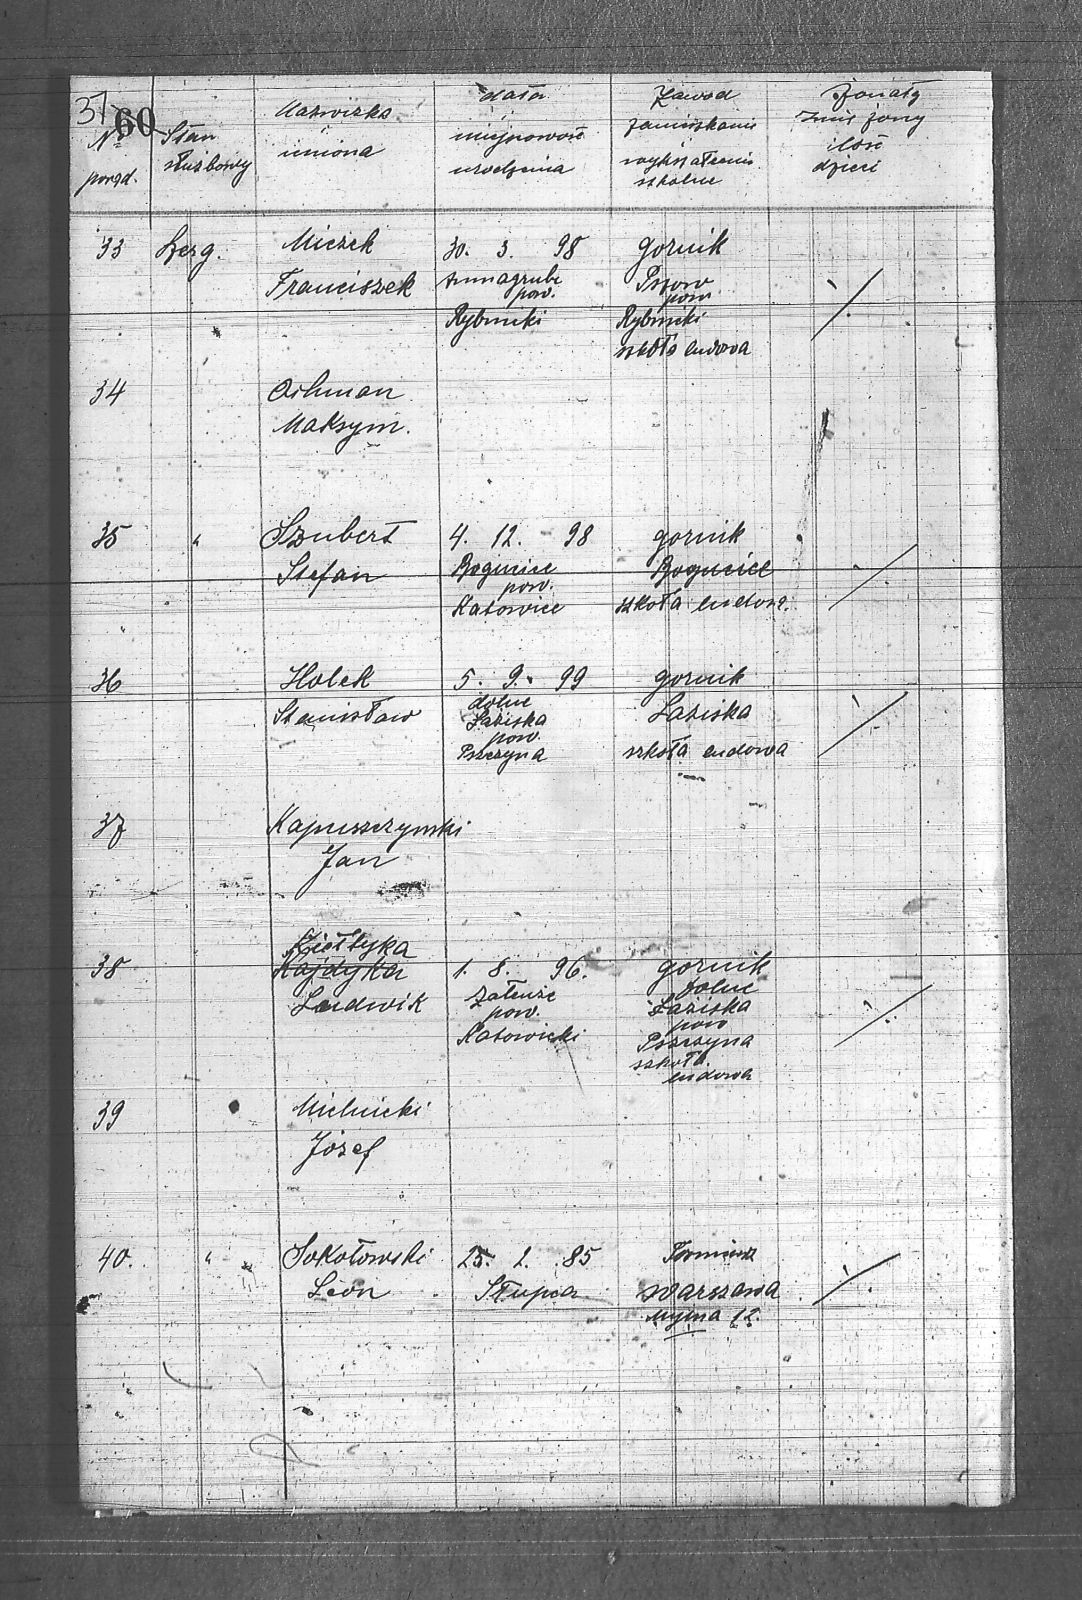 37
60
№ porząd.
Stan służbowy
Nazwisko imiona
data miejscowość urodzenia
Zawod zamieszkanie wykształcenie szkolne
Żonaty Imię żony ilość dzieci
33 Szerg. Miczek 30. 3. 98 gornik
Franciszek Annagrube Pszow
pow. pow
Rybnicki Rybnicki
szkoła ludowa
34
Maksym.
35 " Szubert 4. 12. 98 gornik
Stefan Bogucice Bogucice
pow.
Katowice szkoła ludowa.
36 Holek 5. 9. 99 gornik
dolne
Stanisław Łaziska Łaziska
pow.
Pszczyna szkoła ludowa
37 Kapuszczynski
Jan
Kiełtyka
38 Kajdyka 1. 8. 96. gornik
Ludwik Załenże dolne
pow. Łaziska
pow
Katowicki Pszczyna
szkoła
ludowa
39 Mielnicki
Józef
40. " Sokołowski 25. 2. 85
Leon Słupca Warszawa
12.